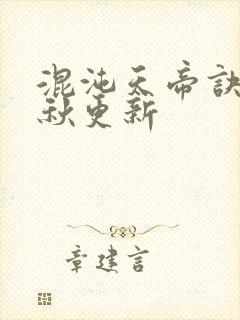 混沌天帝訣
秋更新
章建言